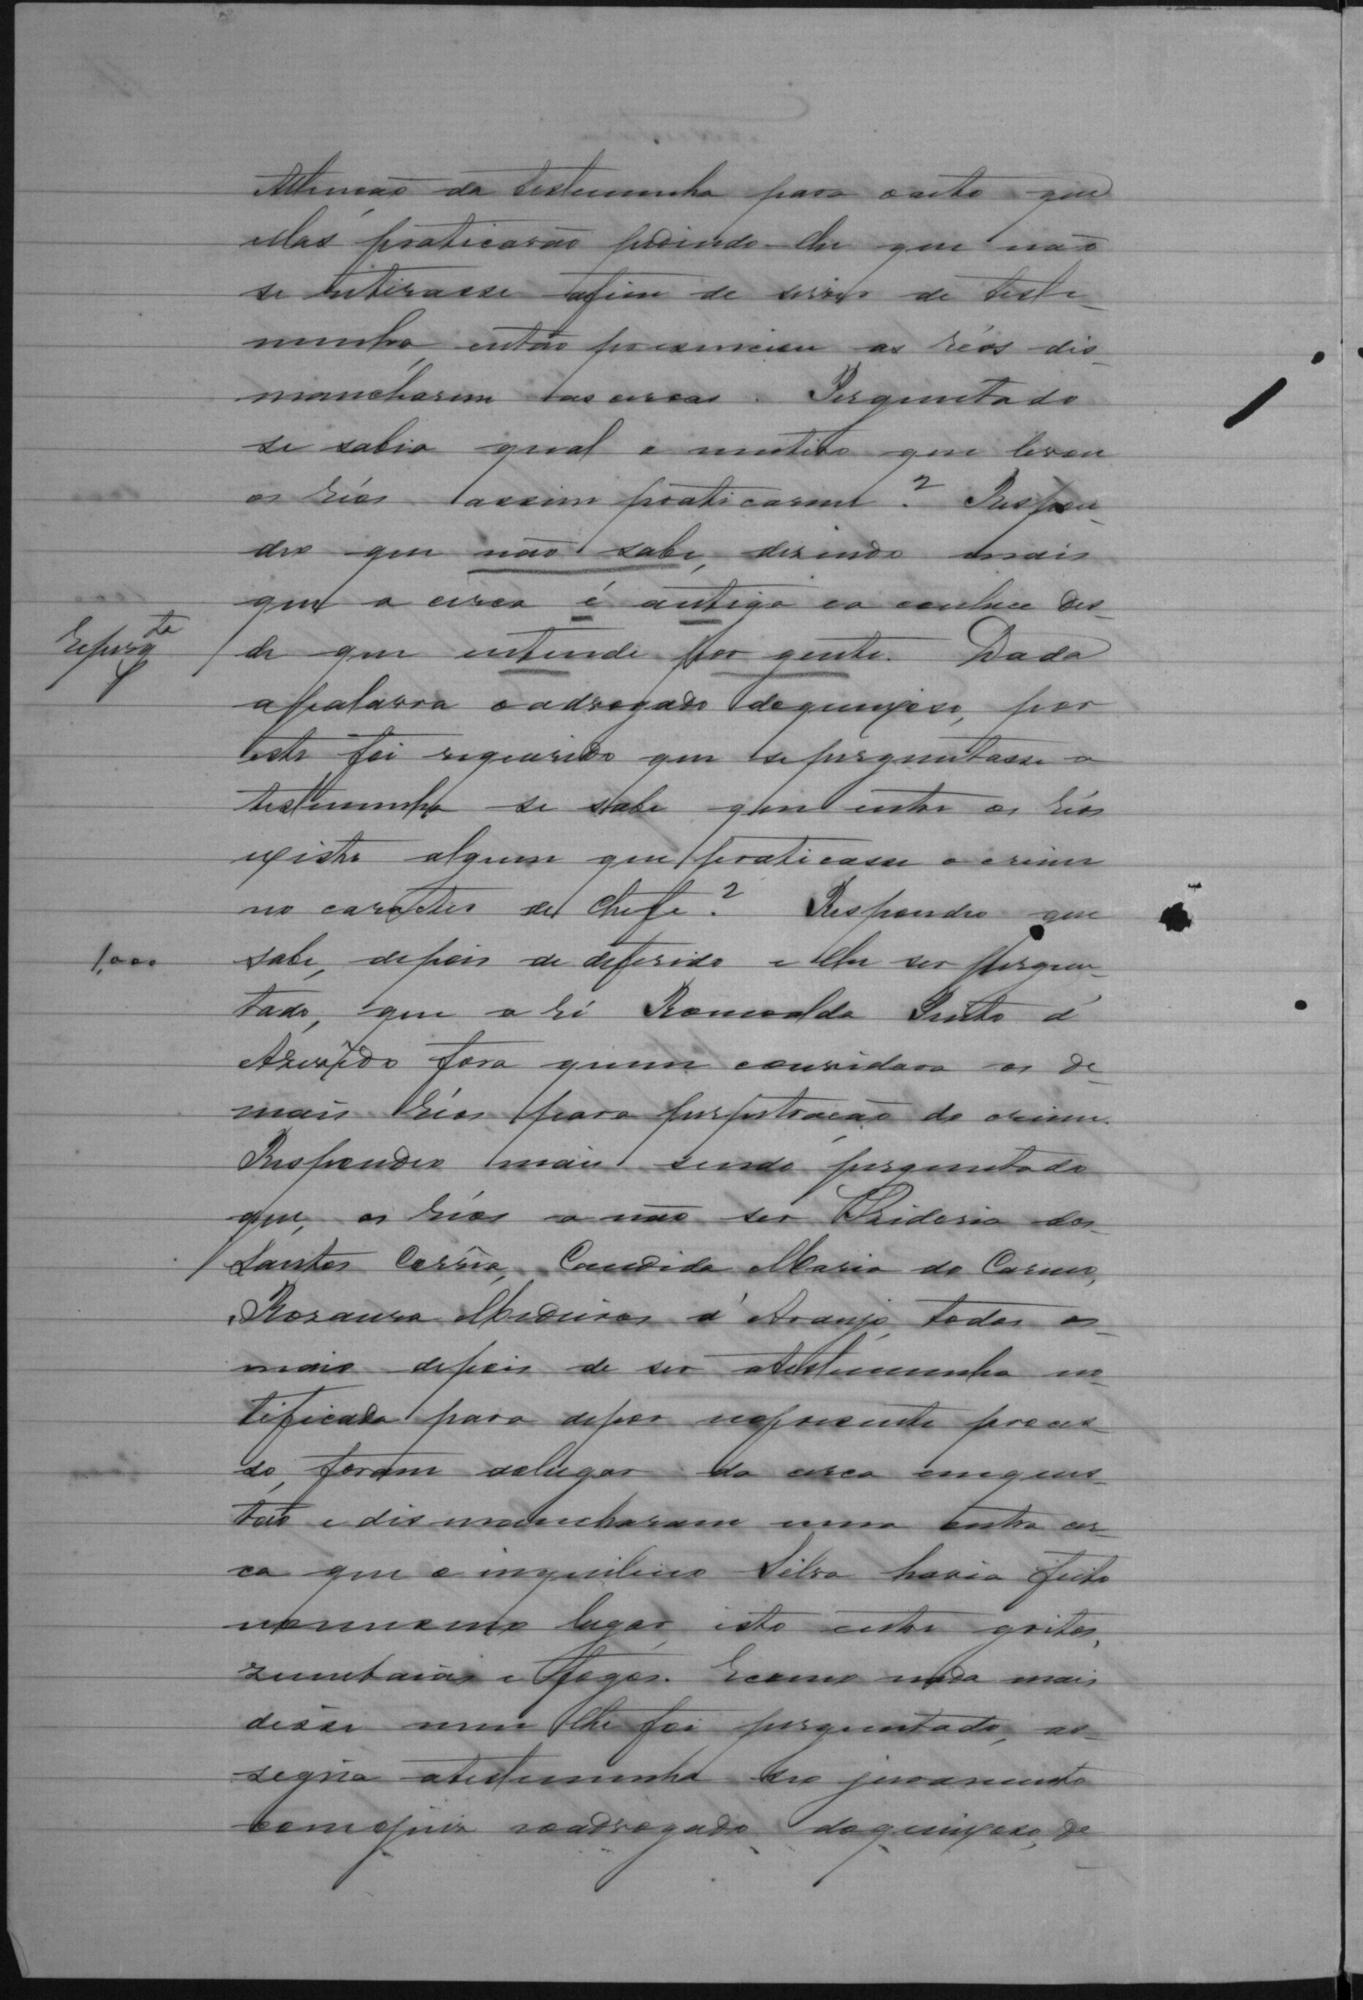 attenção da testemunha para o acto que
ellas praticarão pedindo-lhe que não
se retirasse afim de servir de teste-
munha, então presenciou os réos dis-
mancharem as cercas. Perguntado
se sabia qual o motivo que levou
os réos assim praticarem? Respon-
deo que não sabe, dizendo mais
que a cerca é antiga e a conhece des-
de que entende por gente. Dada
a palavra o advogado do queixoso, por
este foi requerido que se perguntasse a
testemunha se sabe que entre os réos
existe algum que praticasse o crime
no caracter de chefe? Respondeo que
1,000 sabe, depois de deferido e lhe ser pergun-
tado, que a ré Romoalda Pinto d'
Azevedo fora quem convidara os de-
mais réos para perpetração do crime.
Respondeo mais sendo perguntado
que, os réos a não ser Desideria dos
Santos Corrêa, Candida Maria do Carmo,
Rosaura Medeiros d'Araujo, todos os
mais depois de ser a testemunha no-
tificada para depor no presente proces-
so, foram ao lugar da cerca em ques-
tão e dismancharam uma outra cer-
ca que o inquilino Silva havia feito
no mesmo lugar, isto entre gritos,
zumbaias e fogos. E como nada mais
disse nem lhe foi perguntado, as-
signa a testemunha seo juramento
com o juiz e o advogado do queixoso, de